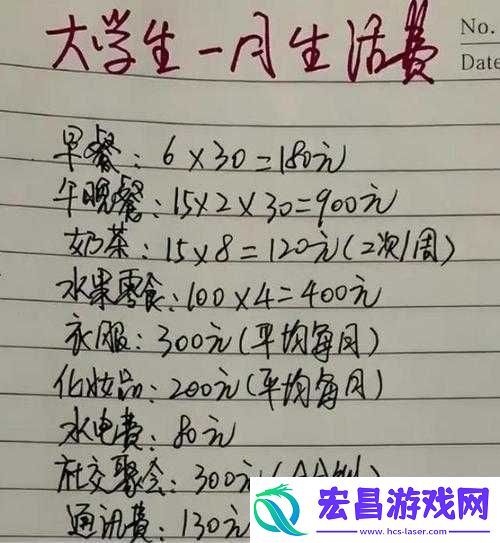 大学生一月生活费
No.
Date
早餐：6×30=180元
午晚餐：15×2×30=900元
奶茶：15×8=120元(2次/周)
水果零食：100×4=400元
衣服：300元(平均每月)
化妆品：200元(平均每月)
水电费：80元
社交聚会：300元(AA制)
通讯费：130元
宏昌游戏网
www.hcs-laser.com